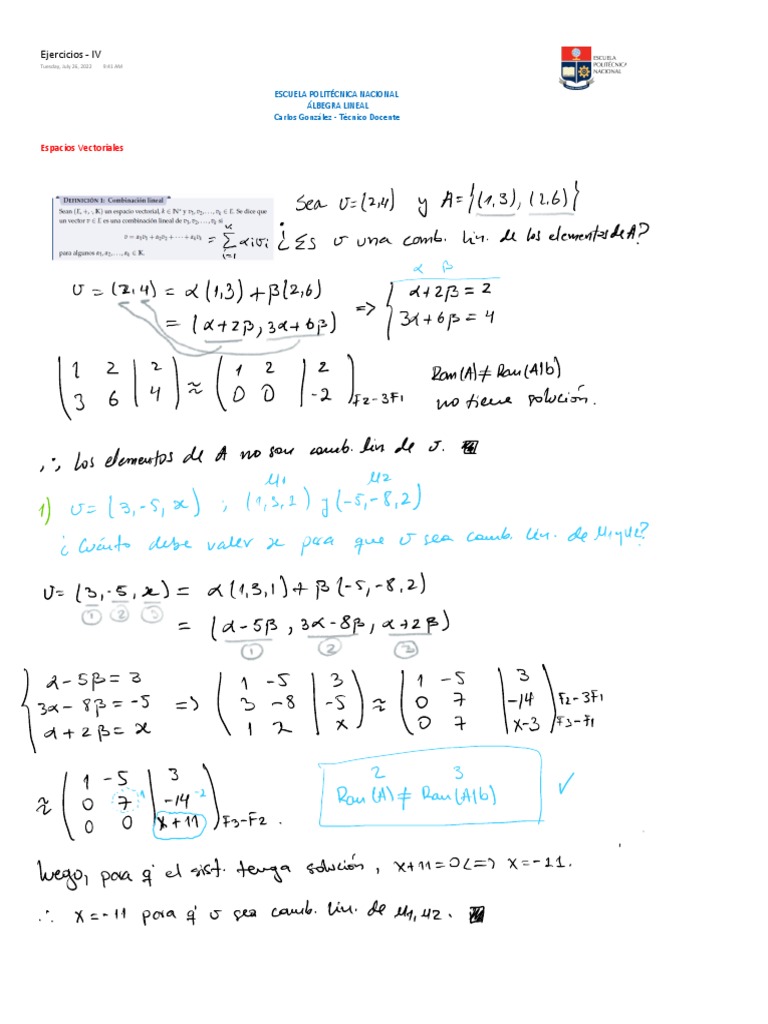 Ejercicios - IV
Tuesday, July 26, 2022 9:41 AM
ESCUELA POLITÉCNICA NACIONAL
ESCUELA POLITÉCNICA NACIONAL
ÁLBEGRA LINEAL
Carlos González - Técnico Docente
Espacios Vectoriales
DEFINICIÓN 1: Combinación lineal
Sean (E, +, ·, K) un espacio vectorial, k ∈ N* y v₁, v₂, …, vₖ ∈ E. Se dice que
un vector v ∈ E es una combinación lineal de v₁, v₂, …, vₖ si
v = α₁v₁ + α₂v₂ + ⋯ + αₖvₖ = Σ αᵢvᵢ
para algunos α₁, α₂, …, αₖ ∈ K.
Sea v=(2,4) y A={(1,3), (2,6)}
¿Es v una comb. lin. de los elementos de A?
v = (2,4) = α(1,3) + β(2,6)
= (α+2β, 3α+6β) => { α+2β = 2
3α+6β = 4
α β
(1 2 | 2
3 6 | 4) ≈ (1 2 | 2
0 0 | -2) F2-3F1
Ran(A) ≠ Ran(A|b)
no tiene solución.
∴ Los elementos de A no son comb. lin de v.
μ1 μ2
1) v=(3,-5,x) ; (1,3,2) y (-5,-8,2)
¿Cuánto debe valer x para que v sea comb. lin. de μ1 y μ2?
v=(3,-5,x) = α(1,3,1) + β(-5,-8,2)
① ② ③
= (α-5β, 3α-8β, α+2β)
① ② ③
{ α-5β = 3
3α-8β = -5
α+2β = x
=> (1 -5 | 3
3 -8 | -5
1 2 | x) ≈ (1 -5 | 3
0 7 | -14
0 7 | x-3) F2-3F1
F3-F1
≈ (1 -5 | 3
0 7 1 | -14 -2
0 0 | x+11) F3-F2.
2 3
Ran(A) ≠ Ran(A|b) ✓
Luego, para q' el sist. tenga solución, x+11=0 <=> x=-11.
∴ x=-11 para q' v sea comb. lin. de μ1, μ2.